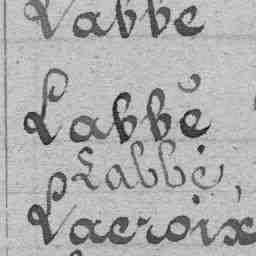 Labbe
Labbé
Labbé,
Lacroix